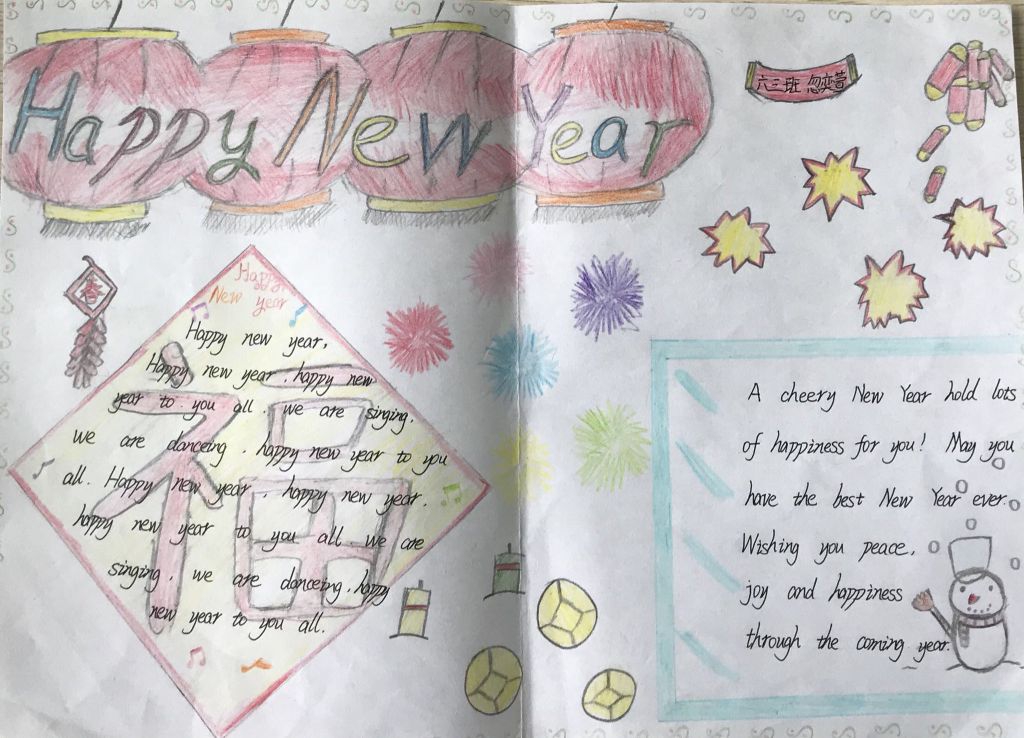 Happy New Year
六三班
春
Happy
New year
福
Happy new year,
Happy new year, happy new
year to you all. we are singing,
we are danceing, happy new year to you
all. Happy new year, happy new year,
happy new year to you all. we are
singing, we are danceing, happy
new year to you all.
A cheery New Year hold lots
of happiness for you! May you
have the best New Year ever.
Wishing you peace,
joy and happiness
through the coming year.